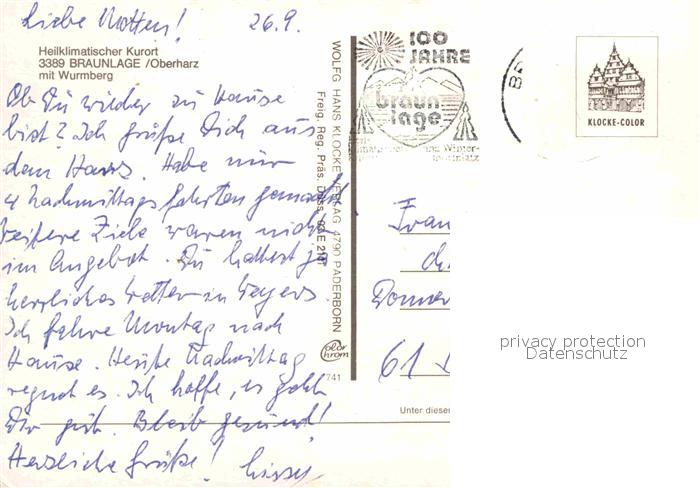 Liebe Motten! 26.9.
Heilklimatischer Kurort
3389 BRAUNLAGE /Oberharz
mit Wurmberg
Ob Du wieder zu Hause
bist? Ich grüße Dich aus
dem Harz. Habe nur
4 Nachmittags fahrten gemacht.
weitere Ziele waren nicht
im Angebot. Du hattest ja
herrliches Wetter in
Ich fahre Montag nach
Hause. Heute Nachmittag
regnet es. Ich hoffe, es geht
Dir gut. Bleib gesund!
Herzliche Grüße!
WOLFG HANS KLOCKE VERLAG 4790 PADERBORN
Freig. Reg. Präs. Düss.
color
chrom
741
100
JAHRE
braun
lage
und Winter-
KLOCKE-COLOR
Frau
61
Unter diese
privacy protection
Datenschutz